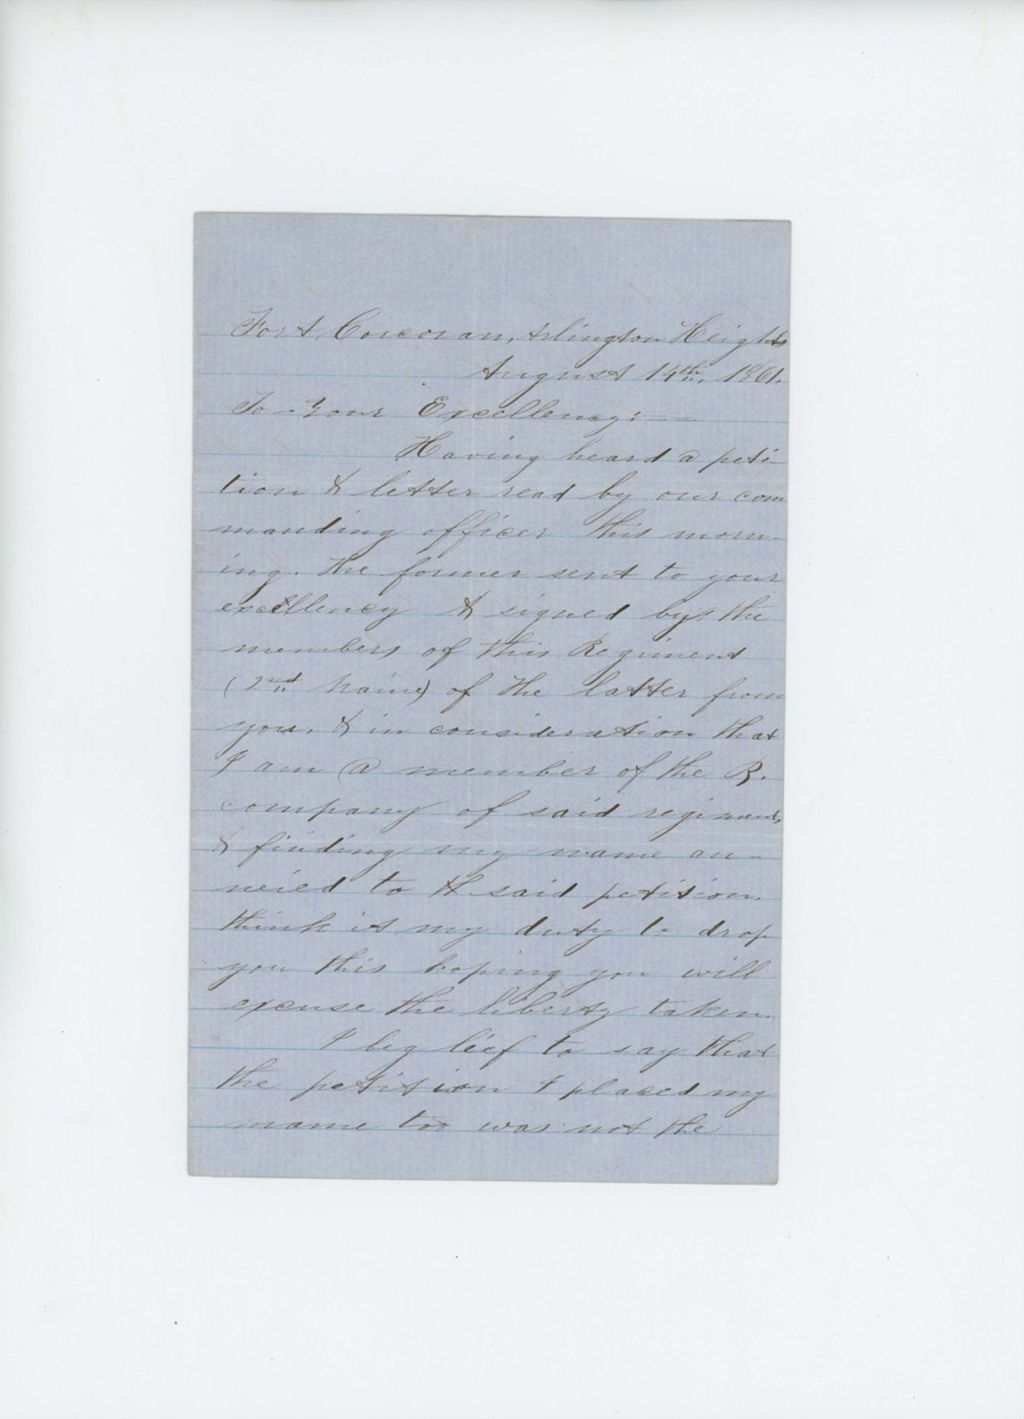 Fort Corcoran, Arlington Heights
August 14th, 1861.
To Your Excellency:—
Having heard a peti-
tion & letter read by our com
manding officer this morn-
ing. The former sent to your
excellency & signed by the
members of this Regiment
(2nd Maine) of the latter from
you. & in consideration that
I am a member of the B.
company of said regiment,
& finding my name an-
nexed to the said petition
think it my duty to drop
you this hoping you will
excuse the liberty taken.
I beg lief to say that
the petition I placed my
name too was not the